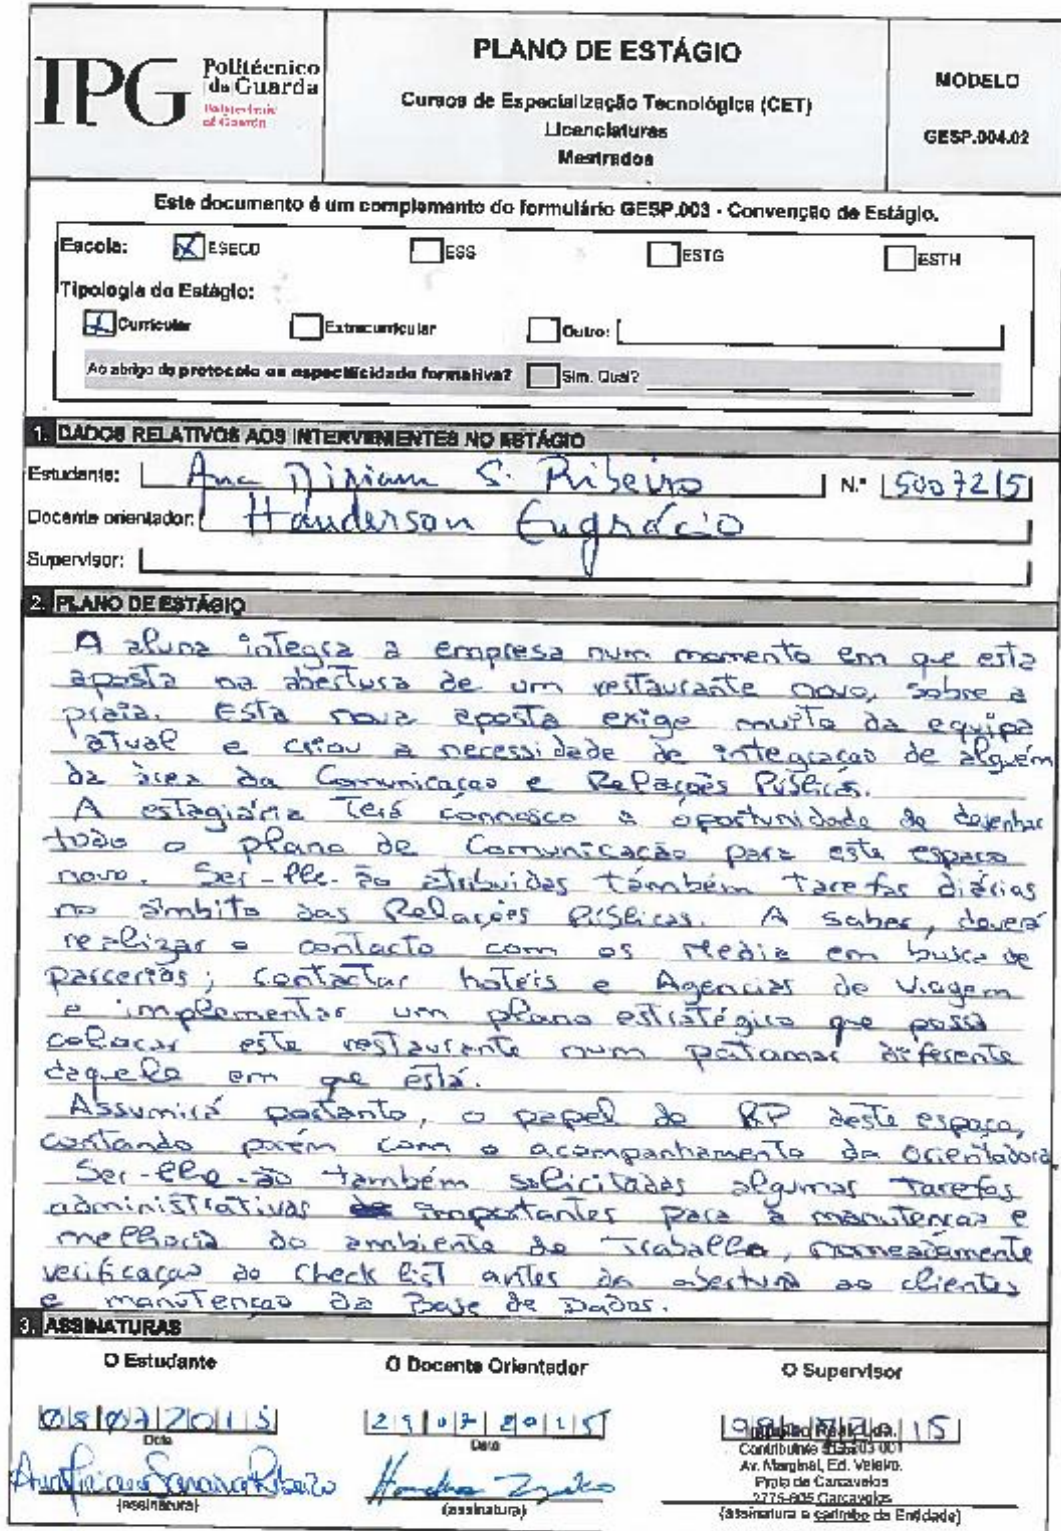 IPG Politécnico
da Guarda
Polytechnic
of Guarda
PLANO DE ESTÁGIO
Cursos de Especialização Tecnológica (CET)
Licenciaturas
Mestrados
MODELO
GESP.004.02
Este documento é um complemento do formulário GESP.003 - Convenção de Estágio.
Escola: ESECD ESS ESTG ESTH
Tipologia do Estágio:
Curricular Extracurricular Outro:
Ao abrigo de protocolo ou especificidade formativa? Sim. Qual?
1. DADOS RELATIVOS AOS INTERVENIENTES NO ESTÁGIO
Estudante: Ana Miriam S. Ribeiro N.º 5007215
Docente orientador: Handerson Engrácio
Supervisor:
2. PLANO DE ESTÁGIO
A aluna integra a empresa num momento em que esta
aposta na abertura de um restaurante novo, sobre a
praia. Esta nova aposta exige muito da equipa
atual e criou a necessidade de integração de alguém
da área da Comunicação e Relações Públicas.
A estagiária terá connosco a oportunidade de desenhar
todo o plano de Comunicação para este espaço
novo. Ser-lhe-ão atribuidas também tarefas diárias
no âmbito das Relações Públicas. A saber, deverá
realizar o contacto com os Media em busca de
parcerias; contactar hotéis e Agencias de Viagem
e implementar um plano estratégico que possa
colocar este restaurante num patamar diferente
daquele em que está.
Assumirá portanto, o papel de RP deste espaço,
contando porém com o acompanhamento da orientadora
Ser-lhe-ão também solicitadas algumas tarefas
administrativas importantes para a manutenção e
melhoria do ambiente de trabalho, nomeadamente
verificação do check list antes da abertura ao clientes
e manutenção da Base de Dados.
3. ASSINATURAS
O Estudante O Docente Orientador O Supervisor
08072015 29072015 15
Data Data
Ana Miriam Ribeiro
(assinatura) (assinatura)
Real, Lda.
Contribuinte
Av. Marginal, Ed. Veleiro.
Praia de Carcavelos
2775-605 Carcavelos
(assinatura e carimbo da Entidade)